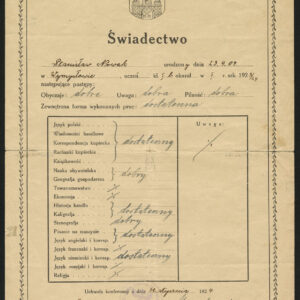 Świadectwo
Stanisław Nowak urodzony dnia 23.9.09
w uczeń kl. I b okazał w I. rok szk. 192
następujące postępy:
Obyczaje: dobre Uwaga: dobra Pilność: dobra
Zewnętrzna forma wykonanych prac: dostateczna
Uwaga:
Język polski
Wiadomości handlowe
Korespondencja kupiecka dostateczny
Rachunki kupieckie
Książkowość
Nauka obywatelska
Geografja gospodarcza dobry
Towaroznawstwo
Ekonomja
Historja handlu
Kaligrafja dostateczny
Stenografja dobry
Pisanie na maszynie
Język angielski i koresp. dostateczny
Język francuski i koresp.
Język niemiecki i koresp. dostateczny
Język rosyjski i koresp.
Religja
Uchwała konferencji z dnia stycznia 192